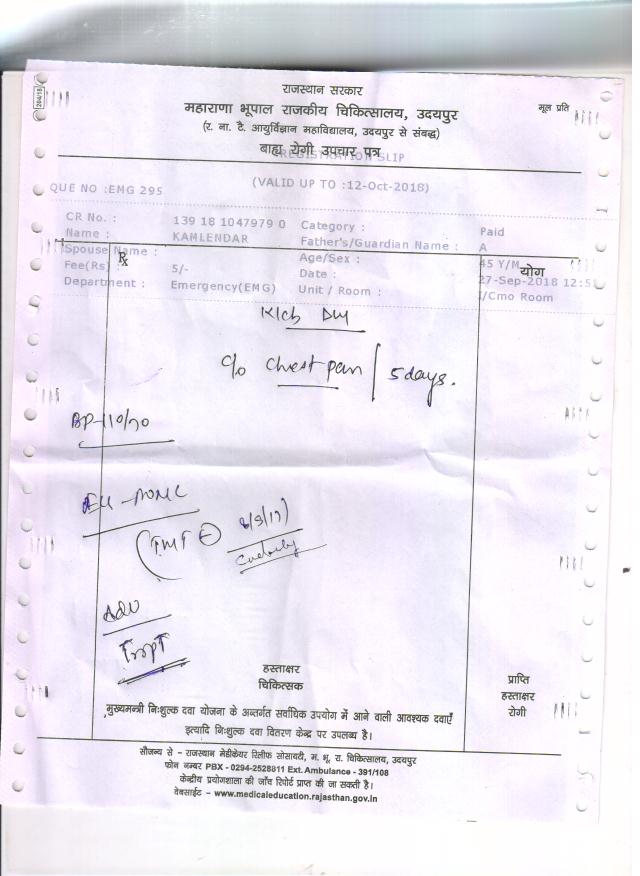 204/18
राजस्थान सरकार
महाराणा भूपाल राजकीय चिकित्सालय, उदयपुर
मूल प्रति
(र. ना. टै. आयुर्विज्ञान महाविद्यालय, उदयपुर से संबद्ध)
बाह्य रोगी उपचार पत्र
REGISTRATION SLIP
QUE NO :EMG 295
(VALID UP TO :12-Oct-2018)
CR No. : 139 18 1047979 0 Category : Paid
Name : KAMLENDAR Father's/Guardian Name : A
Spouse Name : Age/Sex : 45 Y/M
℞ योग
Fee(Rs) : 5/- Date : 27-Sep-2018 12:5
Department : Emergency(EMG) Unit / Room : I/Cmo Room
K/c/o DM
c/o Chest pain / 5 days.
BP-110/70
(TMT ⊖
Adv
TropT
हस्ताक्षर
चिकित्सक
प्राप्ति
हस्ताक्षर
रोगी
मुख्यमन्त्री निःशुल्क दवा योजना के अन्तर्गत सर्वाधिक उपयोग में आने वाली आवश्यक दवाएँ
इत्यादि निःशुल्क दवा वितरण केन्द्र पर उपलब्ध है।
सौजन्य से - राजस्थान मेडीकेयर रिलीफ सोसायटी, म. भू. रा. चिकित्सालय, उदयपुर
फोन नम्बर PBX - 0294-2528811 Ext. Ambulance - 391/108
केन्द्रीय प्रयोगशाला की जाँच रिपोर्ट प्राप्त की जा सकती है।
वेबसाईट - www.medicaleducation.rajasthan.gov.in